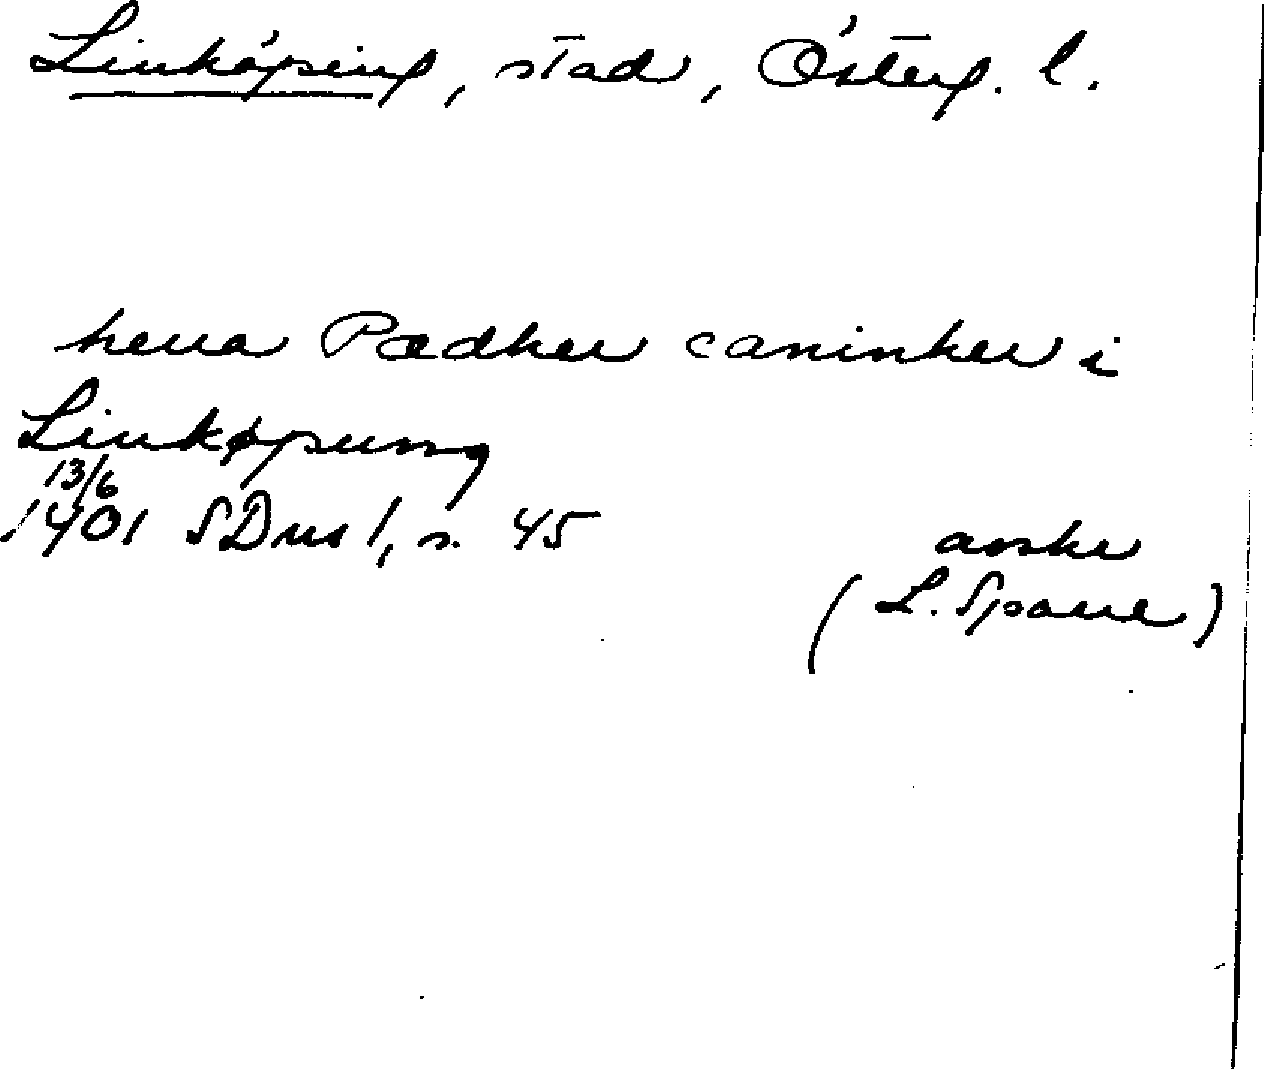 Linköping, stad, Österg. l.
herra Pædher caninker i
Linkøpung
13/6
1401 SDns 1, s. 45
avskr
(L. Sparre)